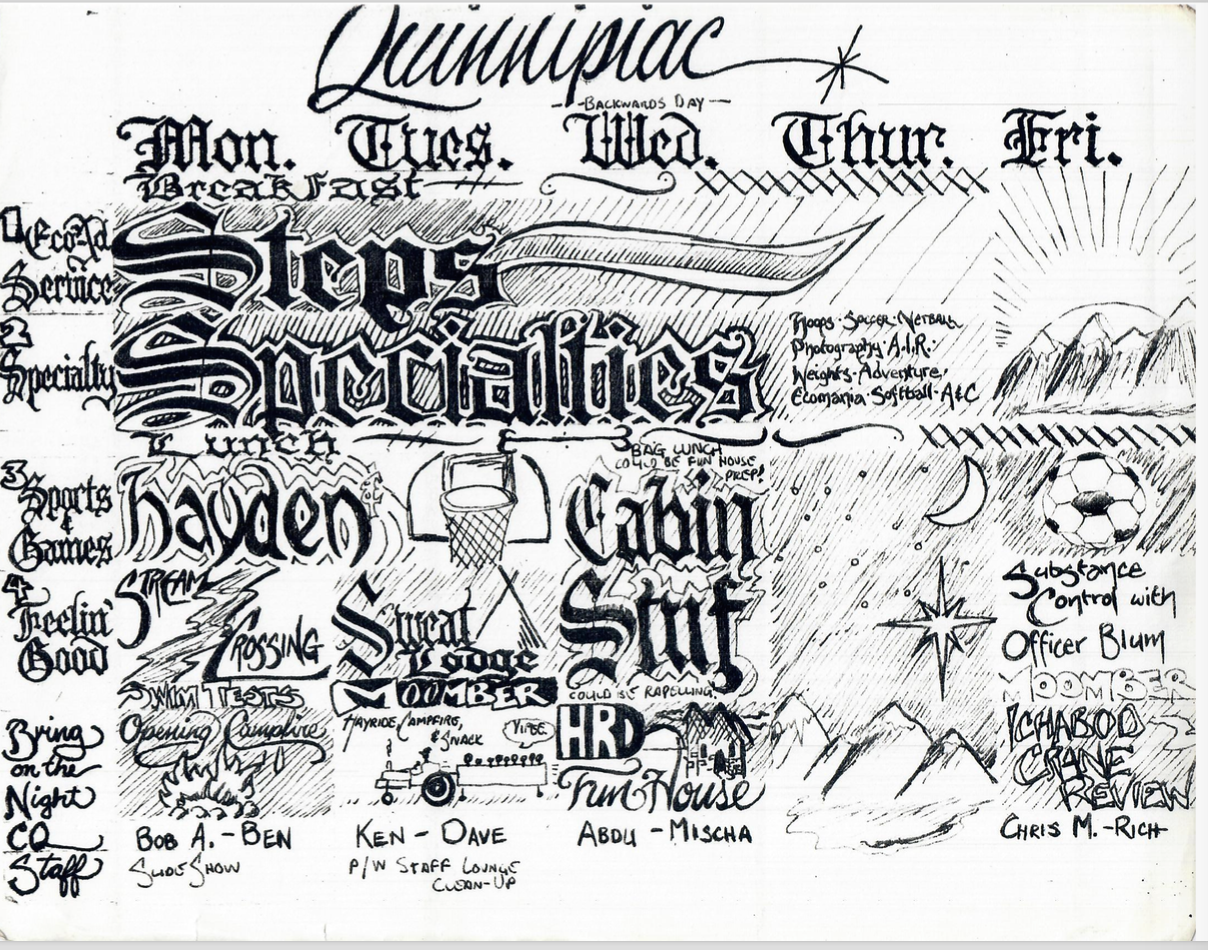 Quinnipiac
—BACKWARDS DAY—
Mon. Tues. Wed. Thur. Fri.
Breakfast
1 Eco-Ad
Service
Steps
2
Specialty
Specialties
Hoops · Soccer · Netball
Photography · A.I.R. ·
Weights · Adventure,
Ecomania · Softball · A&C
Lunch
BAG LUNCH
COULD BE FUN HOUSE
PREP!
3 Sports
&
Games
hayden
Cabin
Stuf
4
Feelin'
Good
STREAM
CROSSING
Sweat
Lodge
Substance
Control with
Officer Blum
SWIM TESTS
MOOMBER
COULD BE RAPELLING!
MOOMBER
Bring
on the
Night
Opening Campfire
HAYRIDE, CAMPFIRE,
& SNACK
HRD
Fun House
ICHABOD
CRANE
REVIEW
CQ
Staff
BOB A. - BEN
KEN - DAVE
ABDU - MISCHA
CHRIS M. - RICH
SLIDE SHOW
P/W STAFF LOUNGE
CLEAN-UP